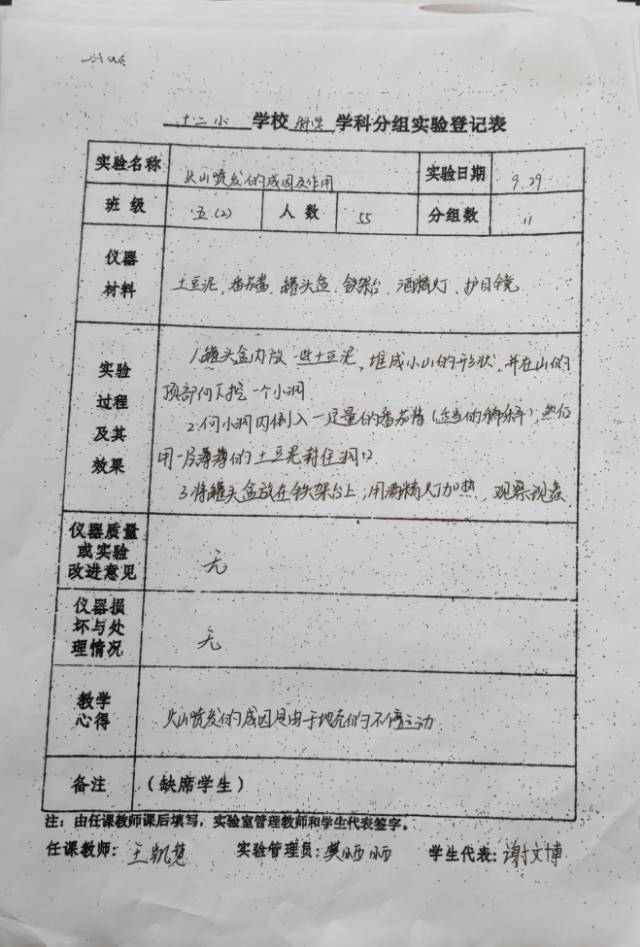 十二小 学校 科学 学科分组实验登记表
实验名称 火山喷发的成因及作用 实验日期 9.29
班级 五(2) 人数 55 分组数 11
仪器材料 土豆泥、番茄酱、罐头盒、铁架台、酒精灯、护目镜
实验过程及其效果
1.罐头盒内放一些土豆泥,堆成小山的形状,并在山的
顶部向下挖一个小洞
2.向小洞内倒入一定量的番茄酱(适当的稀释),然后
用一层薄薄的土豆泥封住洞口
3.将罐头盒放在铁架台上,用酒精灯加热,观察现象
仪器质量或实验改进意见 无
仪器损坏与处理情况 无
教学心得 火山喷发的成因是由于地壳的不停运动
备注 (缺席学生)
注:由任课教师课后填写,实验室管理教师和学生代表签字。
任课教师: 王凯慧 实验管理员: 樊晒晒 学生代表: 谢文博